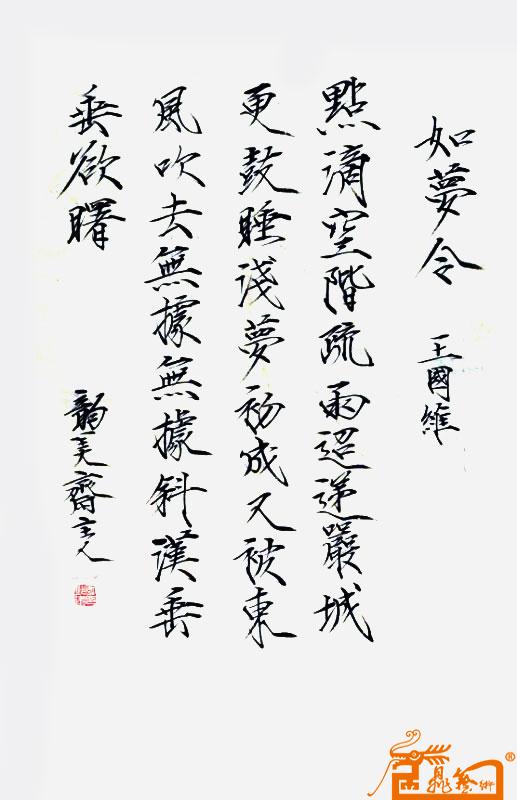 如夢令 王國維
點滴空階疏雨迢遞嚴城
更鼓睡淺夢初成又被東
風吹去無據無據斜漢垂
垂欲曙
韻美齋主人